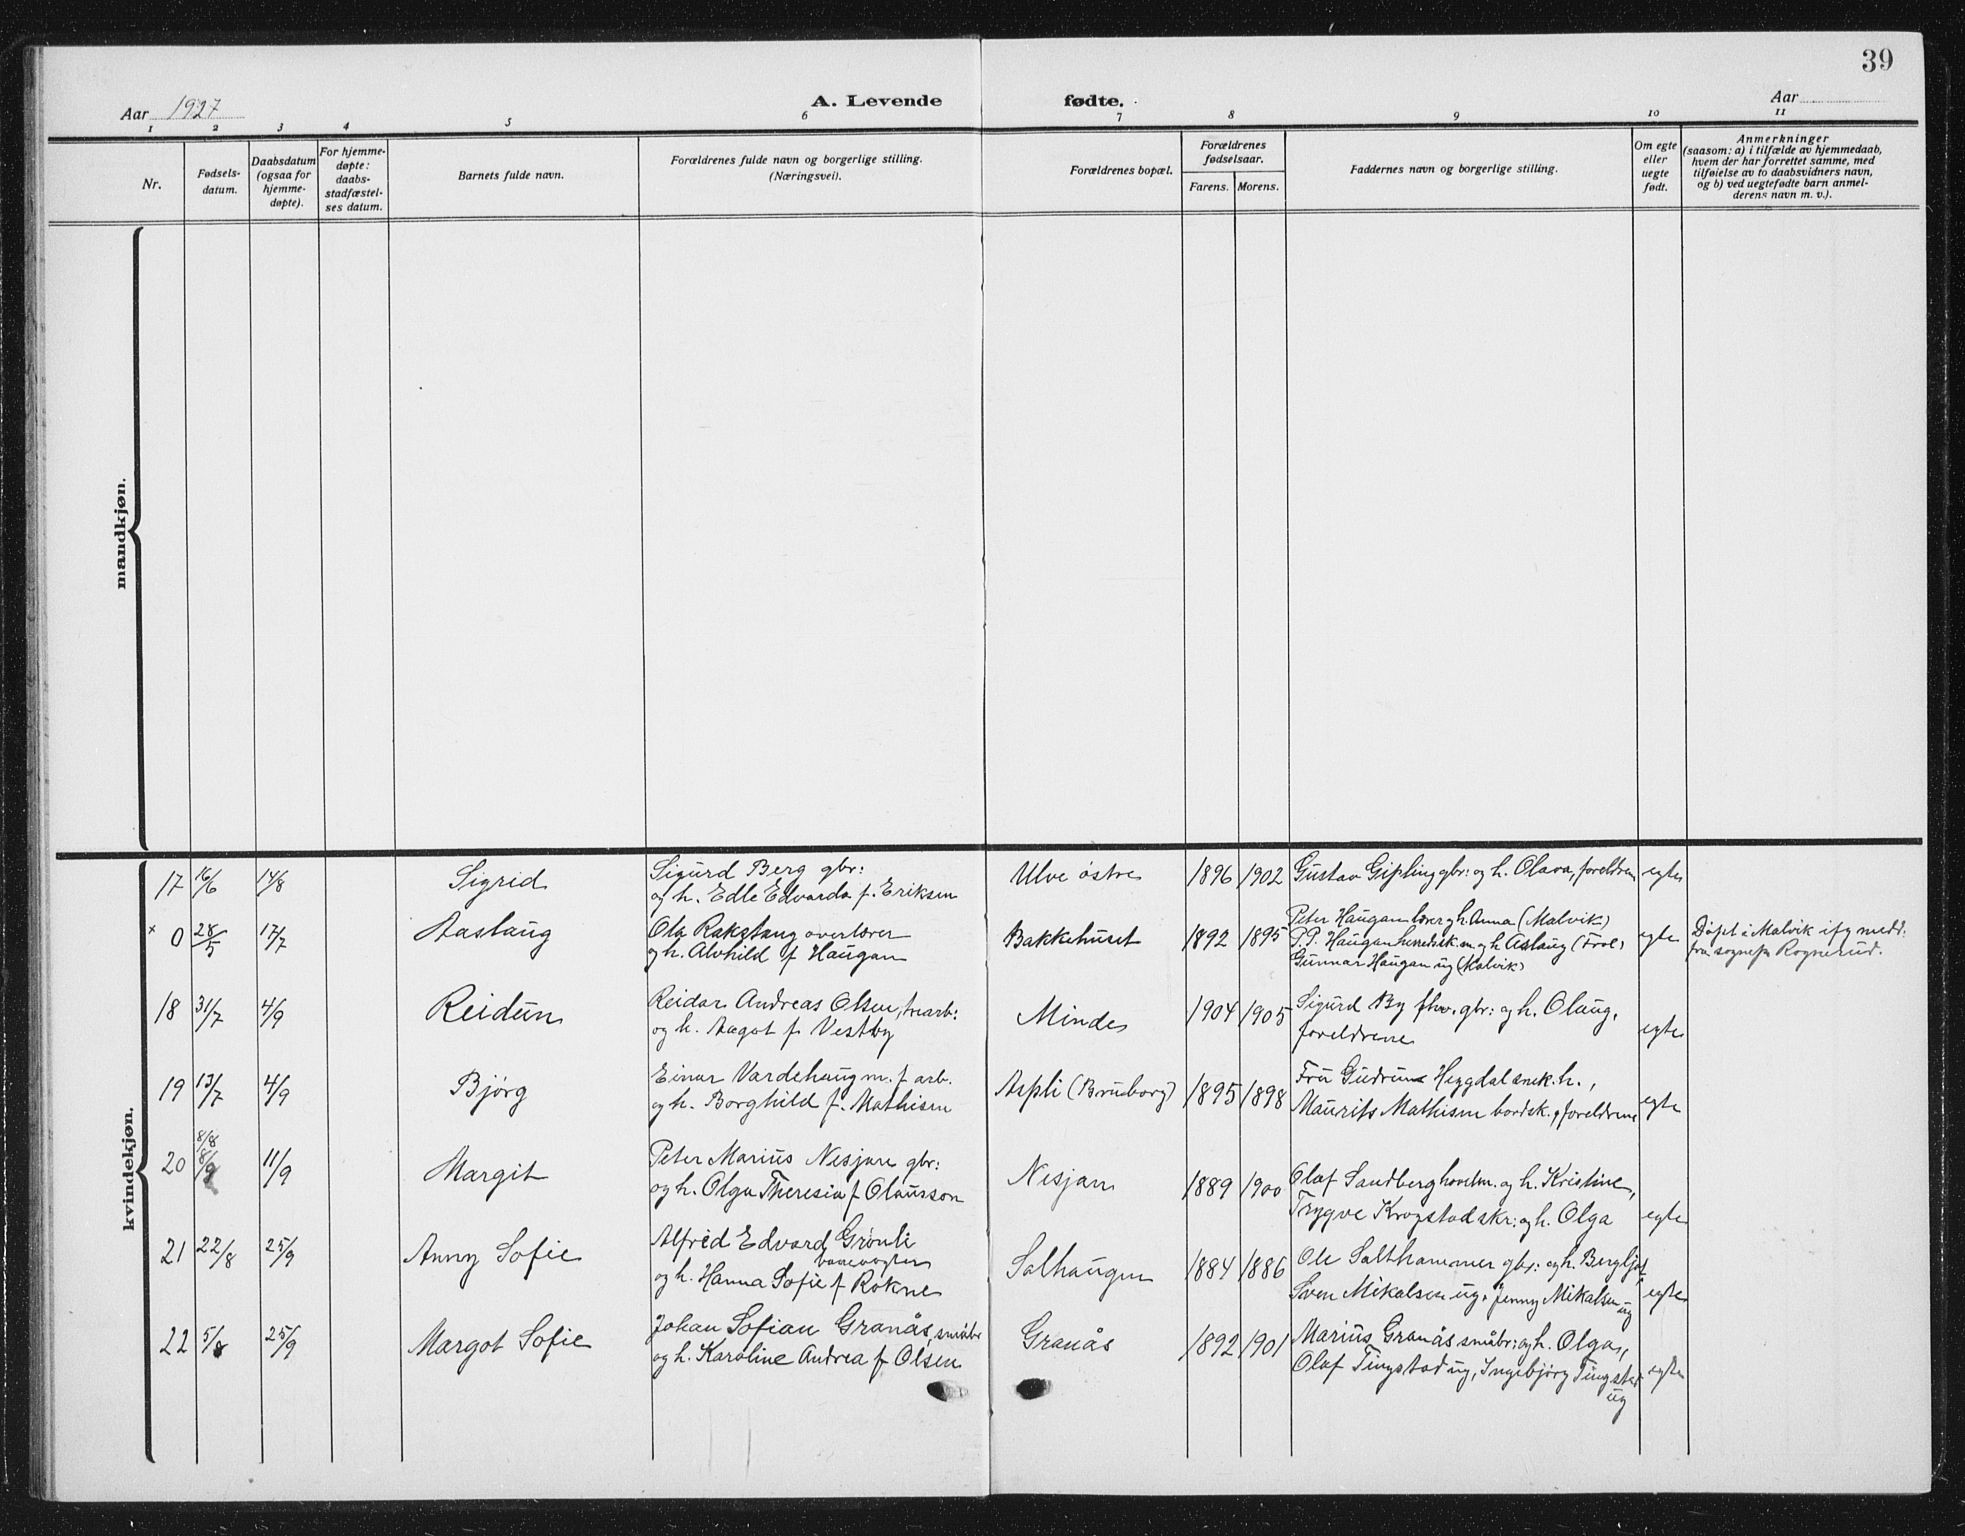 39
Aar 1927
A. Levende
fødte.
Aar
1 2 3 4 5 6 7 8 9 10 11
Nr.
Fødsels-
datum.
Daabsdatum
(ogsaa for
hjemme-
døpte).
For hjemme-
døpte:
daabs-
stadfæstel-
ses datum.
Barnets fulde navn.
Forældrenes fulde navn og borgerlige stilling.
(Næringsvei).
Forældrenes bopæl.
Forældrenes
fødselsaar.
Farens. Morens.
Faddernes navn og borgerlige stilling.
Om egte
eller
uegte
født.
Anmerkninger
(saasom: a) i tilfælde av hjemmedaab,
hvem der har forrettet samme, med
tilføielse av to daabsvidners navn,
og b) ved uegtefødte barn anmel-
derens navn m. v.).
mandkjøn.
kvindekjøn.
17 16/6 14/8 Sigrid Sigurd Berg gbr: Ulve østre 1896 1902 Gustav Gipling gbr: og h. Olava, foreldrene egte
og h. Edle Edvarda f. Eriksen
x 0 28/5 17/7 Aaslaug Ola Rakstang overlærer Bakkehuset 1892 1895 Peter Haugan lærer og h. Anna (Malvik) egte Døpt i Malvik ifg medd.
og h. Alvhild f Haugan P.P. Haugan h. Aslaug fra sognepr Rognerud.
Gunnar Haugan ug (Malvik)
18 31/7 4/9 Reidun Reidar Andreas Olsen, trearb: Minde 1904 1905 Sigurd By fhv. gbr: og h. Olaug, egte
og h. Aagot f Vestby foreldrene
19 13/7 4/9 Bjørg Einar Vardehaug m. f arb. Aspli (Bruborg) 1895 1898 Fru Gudrun Heggdal snek. h., egte
og h. Borghild f. Mathisen Maurits Mathisen bordsk., foreldrene
8/8
20 11/9 Margit Peter Marius Nesjan gbr: Nesjan 1889 1900 Olaf Sandberg hovelm. og h. Kristine, egte
og h. Olga Theresia f Olausson Trygve Krogstad skr: og h. Olga
21 22/8 25/9 Anny Sofie Alfred Edvard Grønli Salhaugen 1884 1886 Ole Salthammer gbr: og h. Bergljot egte
banevogter
og h. Hanna Sofie f Rokne Sven Mikalsen ug, Jenny Mikalsen ug
22 5/8 25/9 Margot Sofie Johan Sofian Granås, småbr Granås 1892 1901 Marius Granås småbr: og h. Olga, egte
og h. Karoline Andrea f Olsen Olaf Tingstad ug, Ingebjørg Tingstad
ug